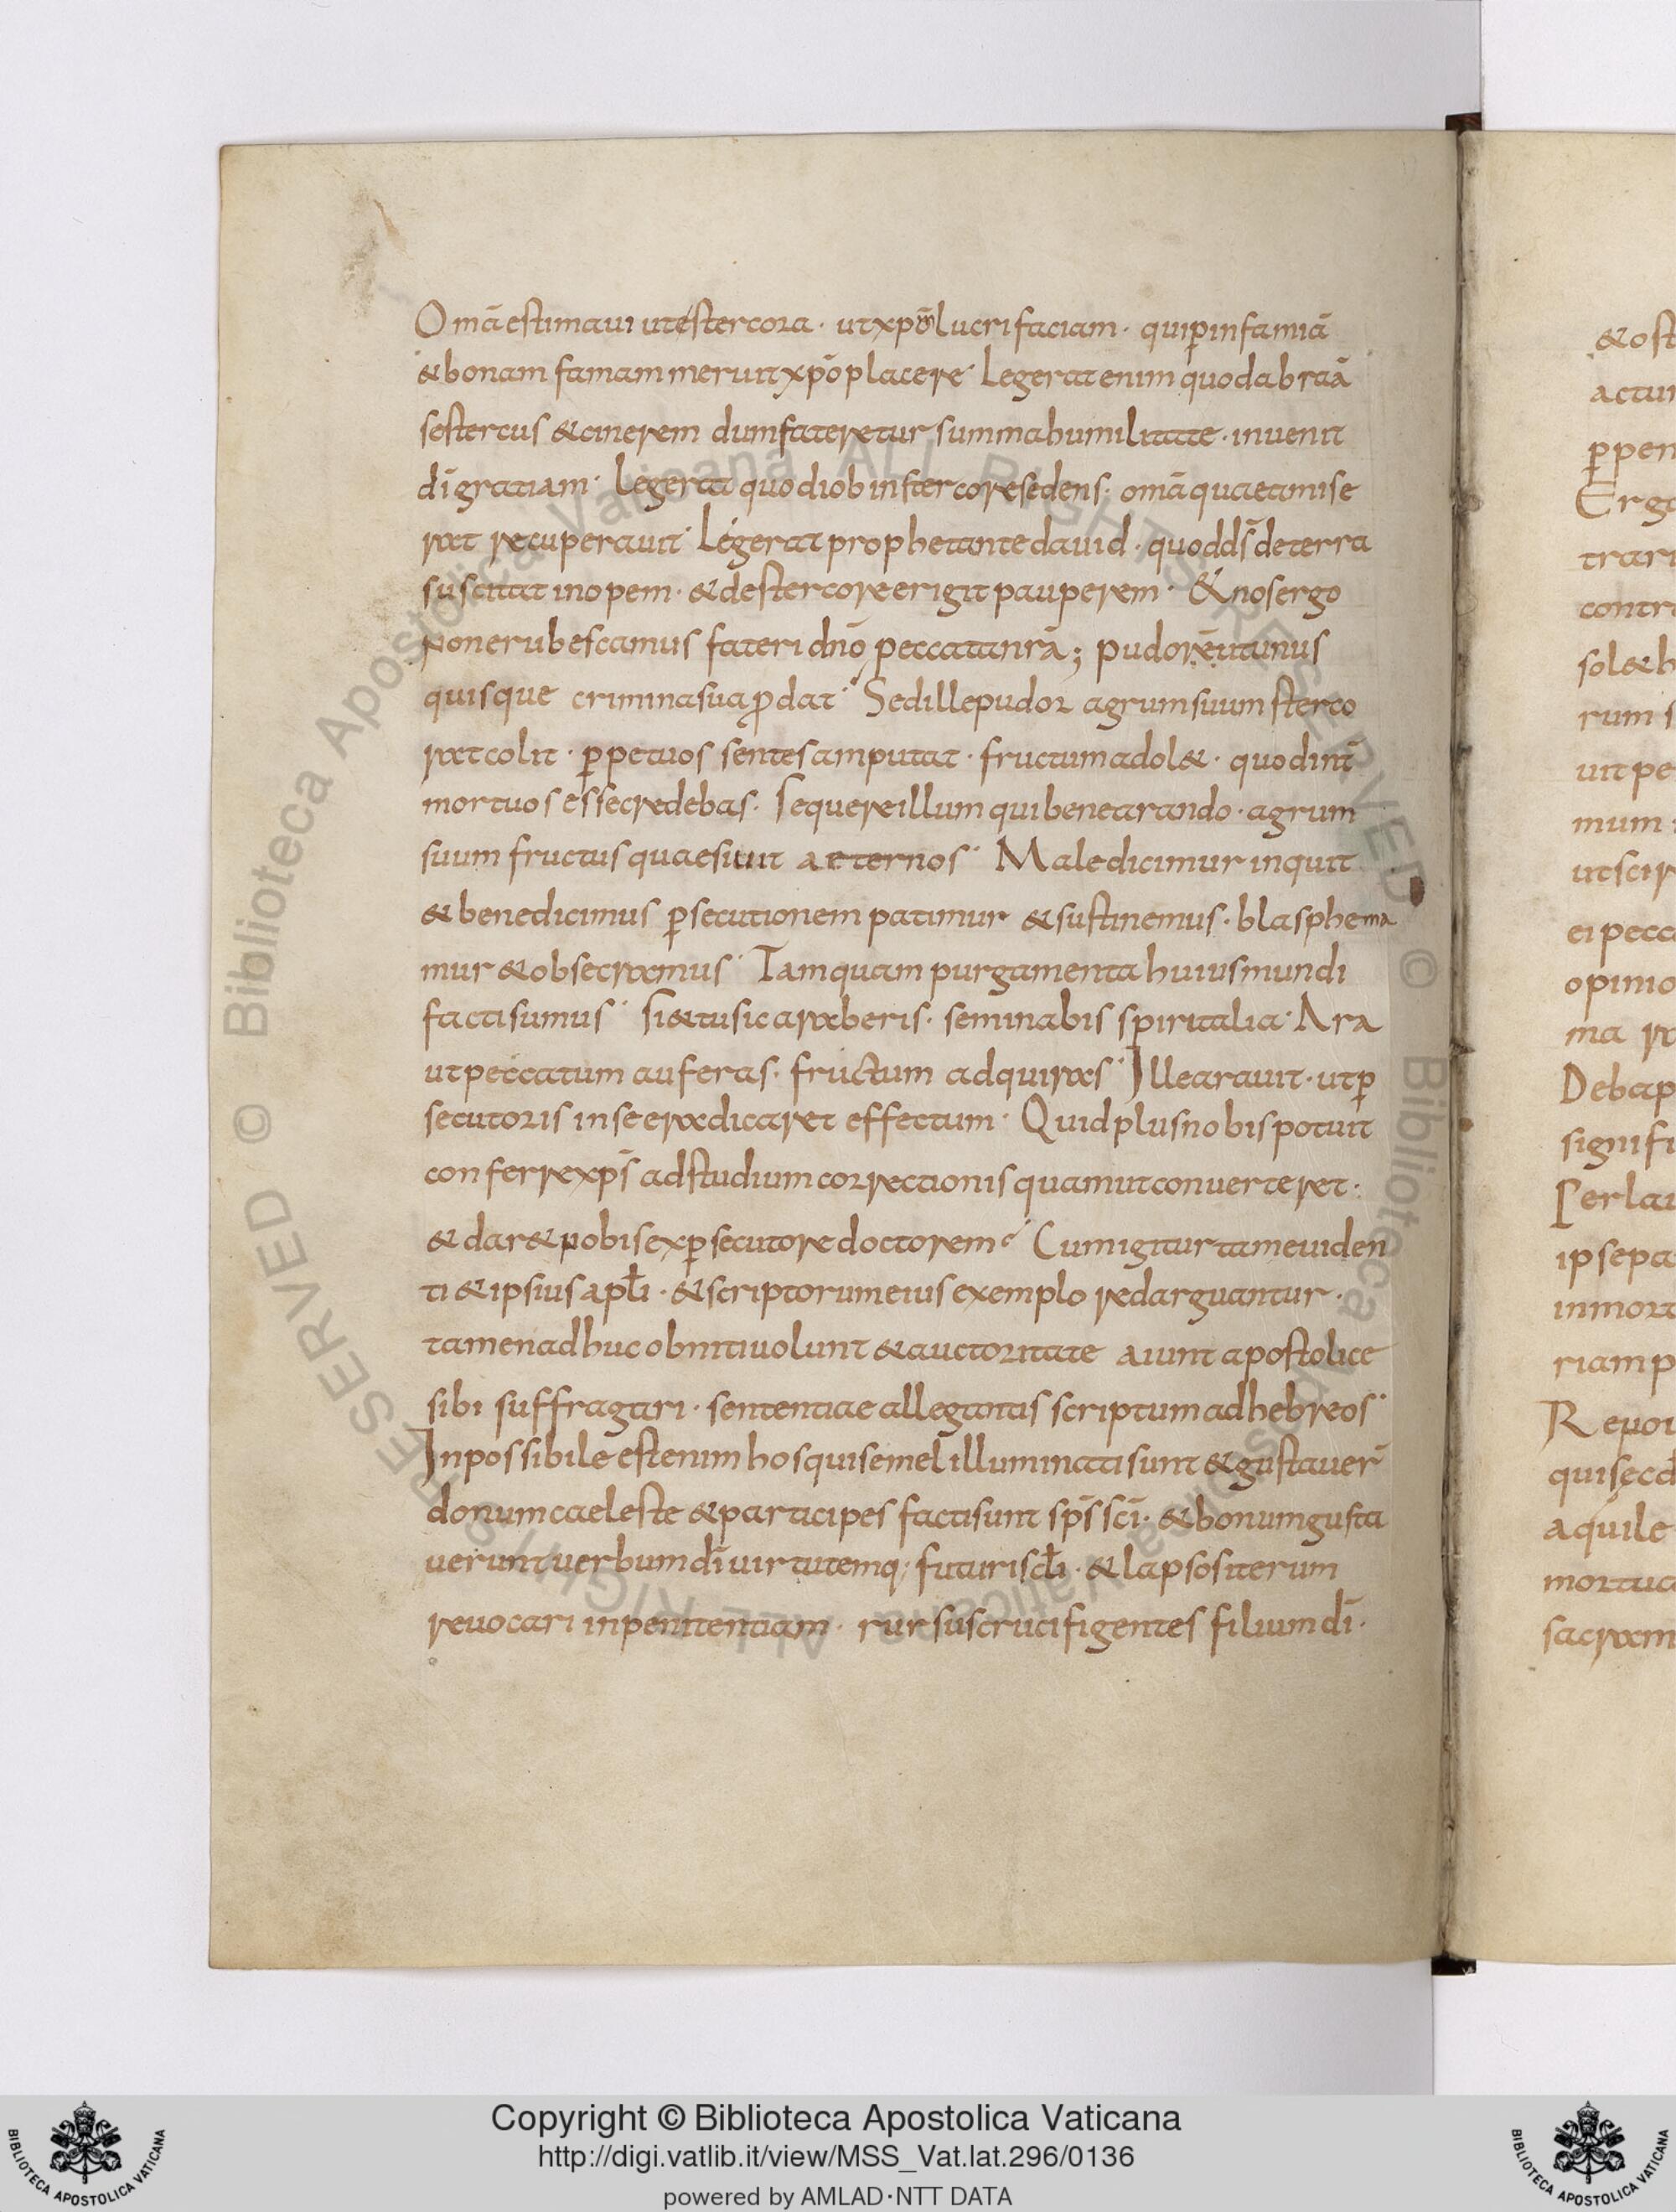 Omā estimaui ut estercora · ut xpōm lucrifaciam · qui ꝑ infamiā
& bonam famam meruit xpō placere · Legerat enim quod abraā
se stercus & cinerem dum fateretur summa humilitate · inuenit
dī gratiam · Legerat quod iob in stercore sedens · omā quae amise
rat recuperauit · Legerat prophetante dauid · quod ds̄ de terra
suscitat inopem · & de stercore erigit pauperem · & nos ergo
non erubescamus fateri dnō peccata nrā ; pudor ē ut unus
quisque crimina sua ꝓdat · Sed ille pudor agrum suum sterco
rat colit · ꝑpetuos sentes amputat · fructum adol& · quod int̄
mortuos esse credebas · Sequere illum qui bene arando · agrum
suum fructus quaesiuit aeternos · Maledicimur inquit
& benedicimus ꝑsecutionem patimur & sustinemus · blasphema
mur & obsecramus · Tamquam purgamenta huius mundi
facti sumus · Si & tu sic araberis · seminabis spiritalia · Ara
ut peccatum auferas · fructum adquiras · Ille arauit · ut ꝑ
secutoris in se eradicaret effectum · Quid plus nobis potuit
conferre xps̄ ad studium correctionis quam ut conuerteret ·
& dar& nobis ex ꝑsecutore doctorem · Cum igitur tam euiden
ti & ipsius aplī · & scriptorum eius exemplo redarguantur ·
tamen adhuc obniti uolunt & auctoritate aiunt apostolice
sibi suffragari · sententiae allegantis scriptum ad hebreos ·
Inpossibile est enim hos qui semel illuminati sunt & gustauer̄
donum caeleste & participes facti sunt sps̄ scī · & bonum gusta
uerunt uerbum dī uirtutemq; futuri sclī · & lapsos iterum
reuocari in penitentiam · rursus crucifigentes filium dī ·
& ost
actu
ꝑpen
Ergo
trari
contra
sol & h
rum s
uit pe
mum
ut scir
ei pecca
opinio
ma ra
De bap
signifi
Per la
ipse pa
in mor
riam p
R
qui sec
a quile
mortua
sacram
© Biblioteca Apostolica Vaticana ALL RIGHTS RESERVED © Biblioteca Apostolica Vaticana ALL RIGHTS RESERVED
BIBLIOTECA APOSTOLICA VATICANA
Copyright © Biblioteca Apostolica Vaticana
http://digi.vatlib.it/view/MSS_Vat.lat.296/0136
powered by AMLAD·NTT DATA
BIBLIOTECA APOSTOLICA VATICANA